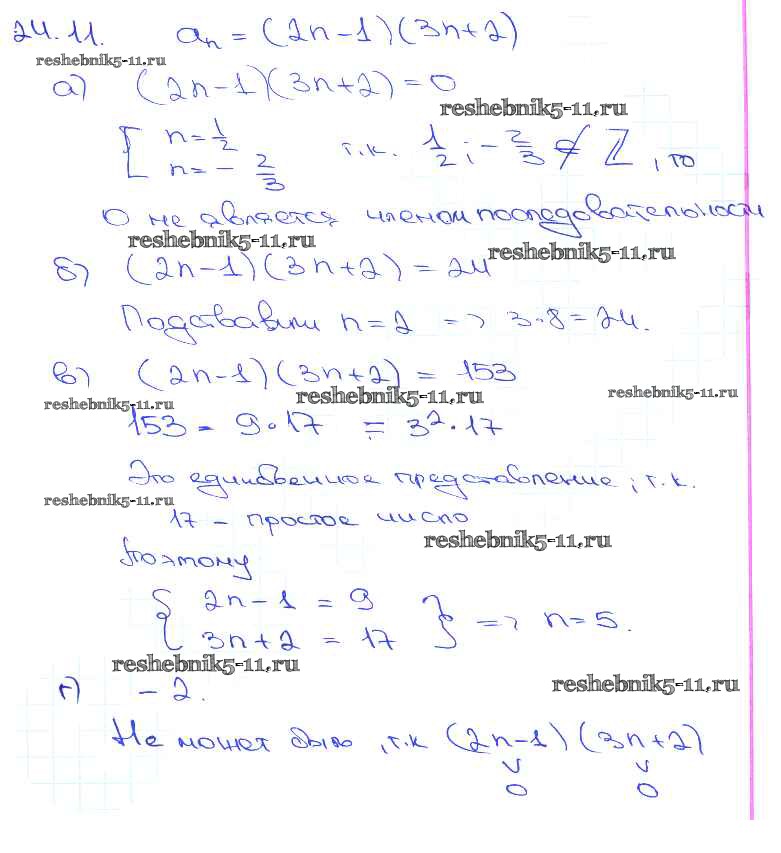 24.11. aₙ = (2n-1)(3n+2)
reshebnik5-11.ru
а) (2n-1)(3n+2)=0
reshebnik5-11.ru
[ n=1/2
n=-2/3 т.к. 1/2; -2/3 ∉ Z, то
0 не является членом последовательности
reshebnik5-11.ru
reshebnik5-11.ru
б) (2n-1)(3n+2)=24
Подставим n=2 => 3·8=24.
в) (2n-1)(3n+2) = 153
reshebnik5-11.ru
reshebnik5-11.ru
reshebnik5-11.ru
153 = 9·17 = 3²·17
Это единственное представление, т.к.
reshebnik5-11.ru
17 - простое число
reshebnik5-11.ru
Поэтому
{ 2n-1 = 9
3n+2 = 17 } => n=5.
reshebnik5-11.ru
г) -2.
reshebnik5-11.ru
Не может быть, т.к (2n-1)(3n+2)
∨ ∨
0 0